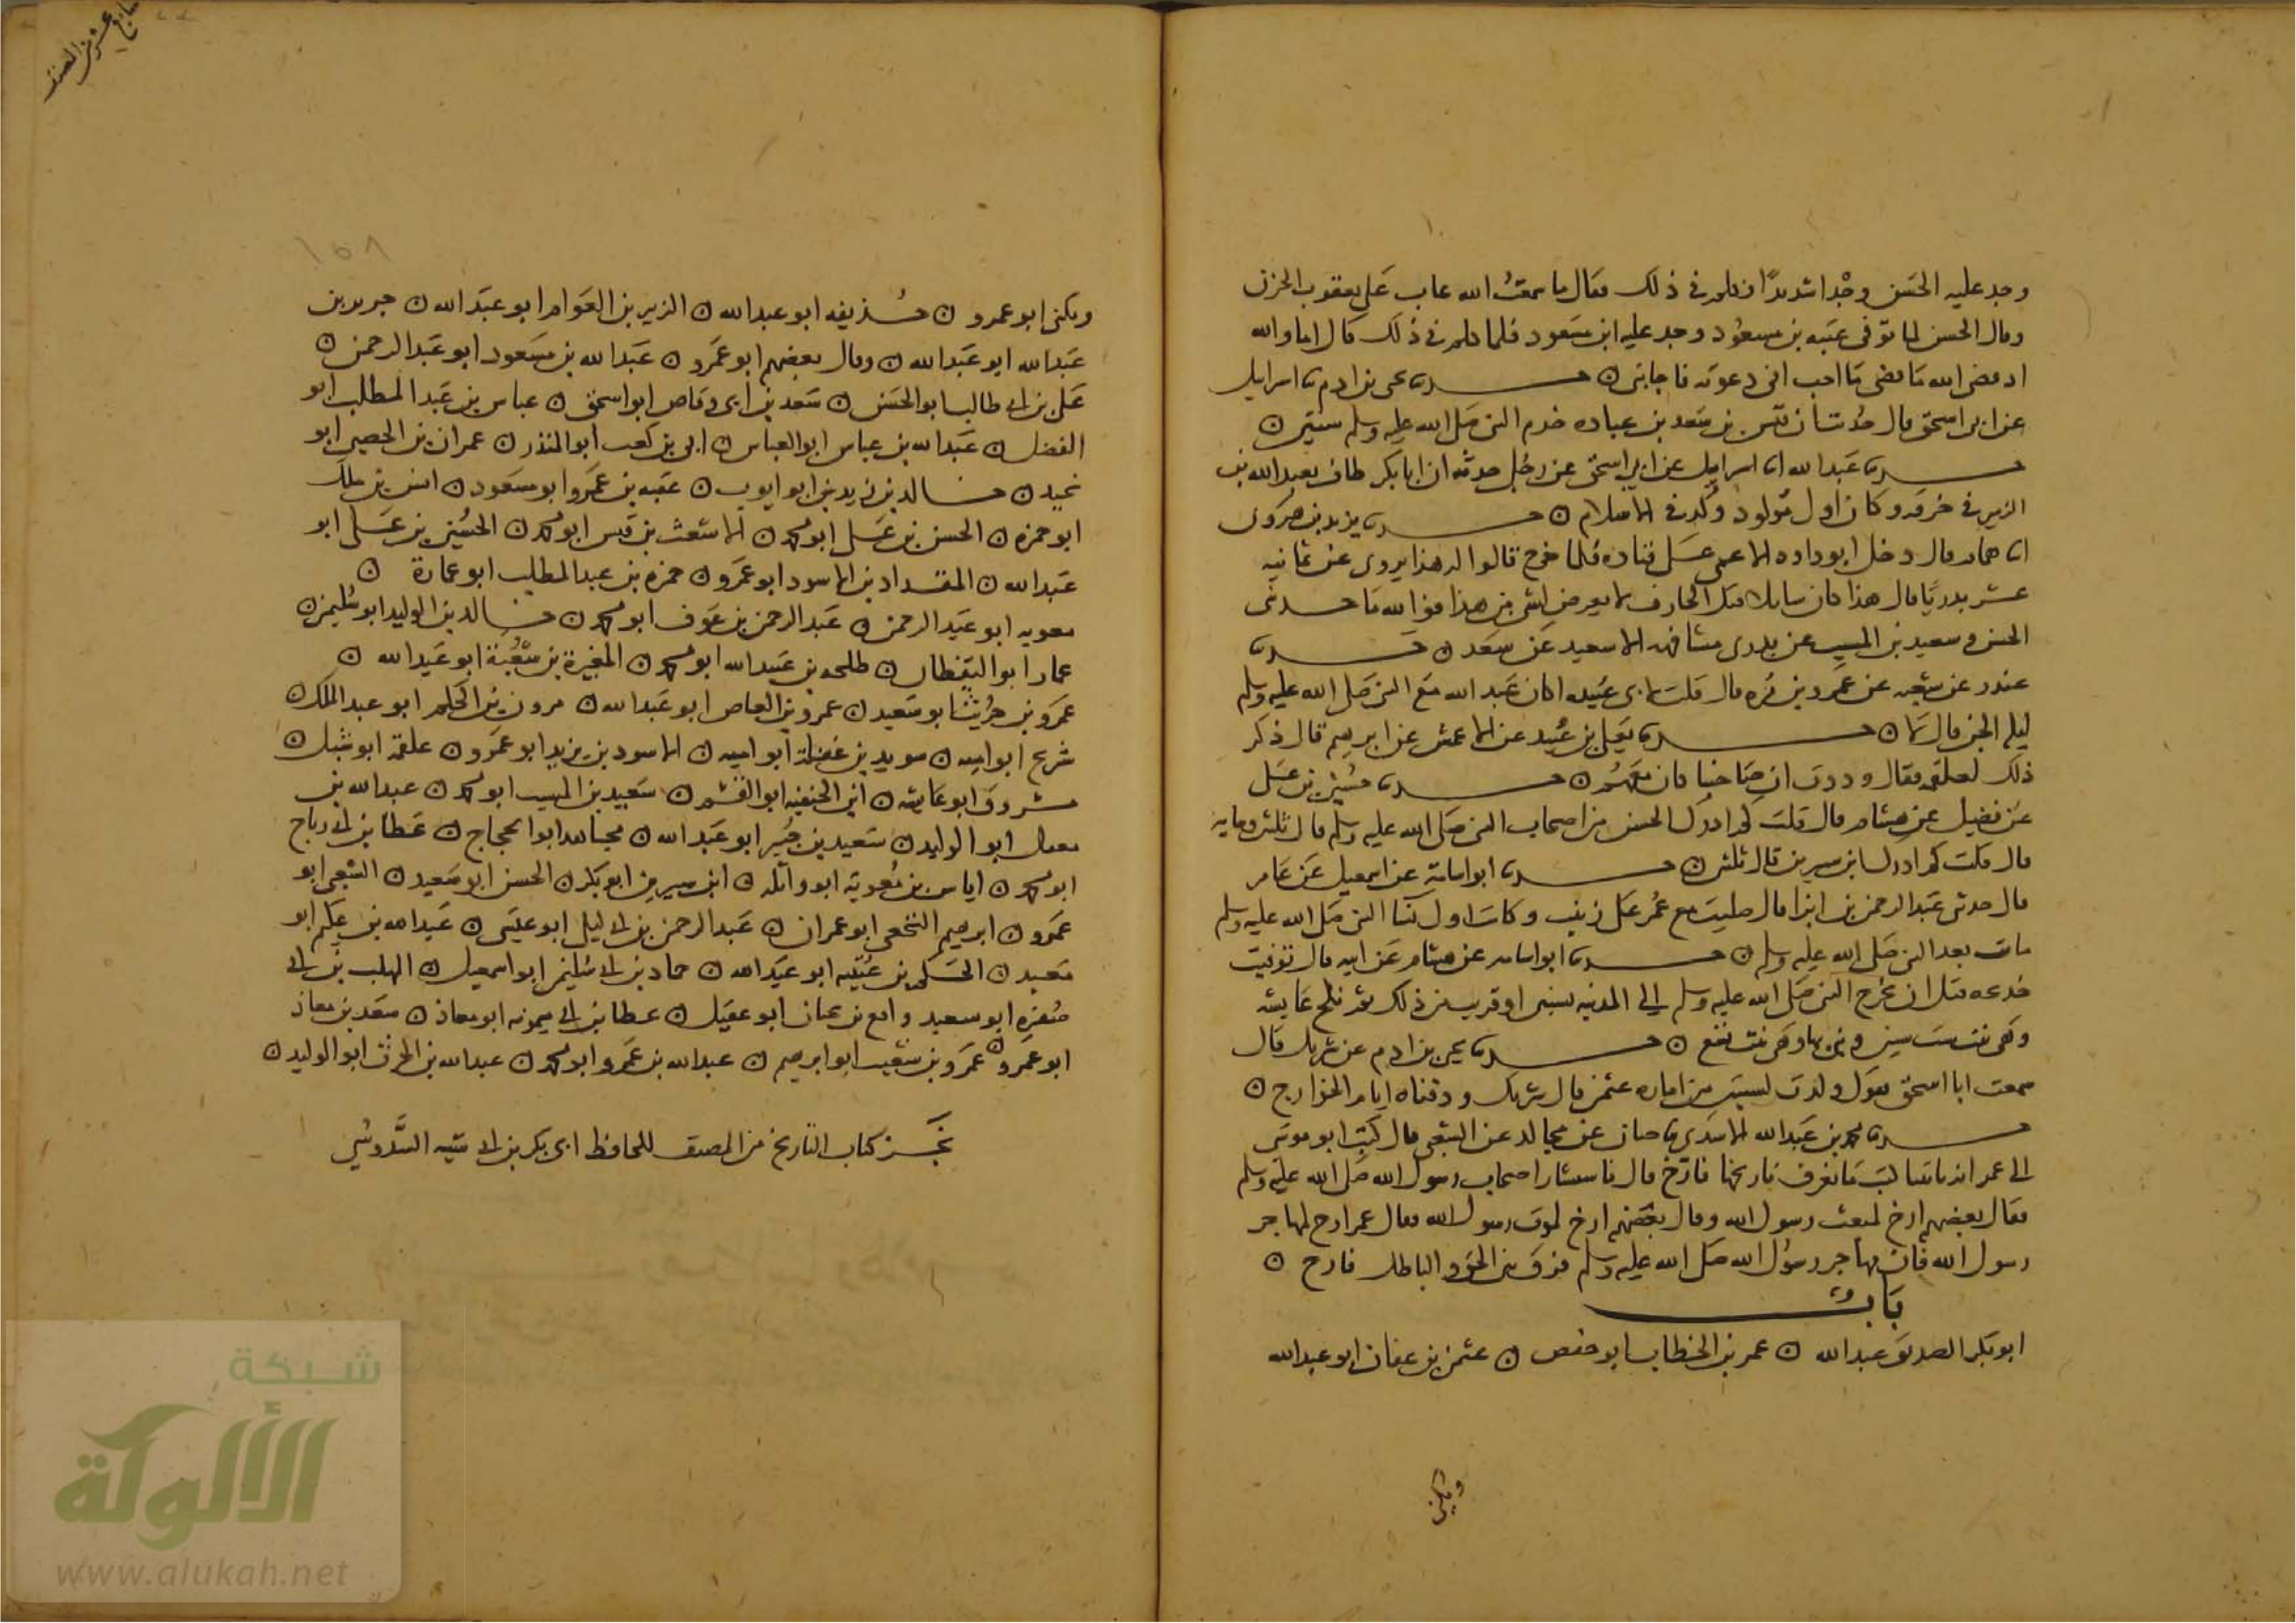 وجد عليه الحسن وجدا شديدا فكلم في ذلك فقال ما سمعت الله عاب على يعقوب الحزن
وقال الحسن لما توفي عتبه بن مسعود وجد عليه ابن مسعود فلما كلم في ذلك قال اما والله
اذ قضى الله ما قضى ما احب اني دعوته فاجابني ن حدثنا يحيى بن ادم نا اسرايل
عن ابي اسحق قال حدثنا ان قيس بن سعد بن عباده خدم النبي صلى الله عليه وسلم سنتين ن
حدثنا عبد الله انا اسرايل عن ابي اسحق عن رجل حدثه ان ابا بكر طاف بعبد الله بن
الزبير في خرقه وكان اول مولود ولد في الاسلام ن حدثنا يزيد بن هرون
انا همام قال دخل ابو داود الاعمى على قتاده فلما خرج قالوا له هذا يروى عن ثمانيه
عشر بدريا قال هذا كان سايلا قبل الجارف لا يعرض لشي من هذا فوالله ما حدثني
الحسن وسعيد بن المسيب عن بدري مشافهه الا سعيد عن سعد ن حدثنا
غندر عن شعبه عن عمرو بن مره قال قلت لابي عبيده اكان عبد الله مع النبي صلى الله عليه وسلم
ليله الجن قال لا ن حدثنا يعلى بن عبيد عن الاعمش عن ابرهيم قال ذكر
ذلك لعلقمه فقال وددت ان صاحبنا كان معهم ن حدثنا حسين بن على
عن فضيل عن هشام قال قلت كم ادرك الحسن من اصحاب النبي صلى الله عليه وسلم قال ثلثين ومايه
قال قلت كم ادرك ابن سيرين قال ثلثين ن حدثنا ابو اسامة عن اسمعيل عن عامر
قال حدثني عبد الرحمن بن ابزا قال صليت مع عمر على زينب وكانت اول نسا النبي صلى الله عليه وسلم
ماتت بعد النبي صلى الله عليه وسلم ن حدثنا ابو اسامه عن هشام عن ابيه قال توفيت
خديجه قبل ان يخرج النبي صلى الله عليه وسلم الى المدينه بسنتين او قريب من ذلك ثم نكح عايشه
وهي بنت ست سنين وبنى بها وهي بنت تسع ن حدثنا يحيى بن ادم عن شريك قال
سمعت ابا اسحق يقول ولدت لسنتين من اماره عثمن قال شريك ودفناه ايام الخوارج ن
حدثنا محمد بن عبد الله الاسدي نا حبان عن مجالد عن الشعبي قال كتب ابو موسى
الى عمر انه ياتينا كتب ما نعرف تاريخها فارخ قال فاستشار اصحاب رسول الله صلى الله عليه وسلم
فقال بعضهم ارخ لمبعث رسول الله وقال بعضهم ارخ لموت رسول الله فقال عمر ارخ لمهاجر
رسول الله فان مهاجر رسول الله صلى الله عليه وسلم فرق بين الحق والباطل فارخ ن
باب
ابو بكر الصديق عبد الله ن عمر بن الخطاب ابو حفص ن عثمن بن عفان ابو عبد الله
ويكنى
١٥٨
ويكنى ابو عمرو ن حذيفه ابو عبد الله ن الزبير بن العوام ابو عبد الله ن جرير بن
عبد الله ابو عبد الله ن وقال بعضهم ابو عمرو ن عبد الله بن مسعود ابو عبد الرحمن ن
على بن ابي طالب ابو الحسن ن سعد بن ابي وقاص ابو اسحق ن عباس بن عبد المطلب ابو
الفضل ن عبد الله بن عباس ابو العباس ن ابي بن كعب ابو المنذر ن عمران بن الحصين ابو
نجيد ن خالد بن زيد بن ابو ايوب ن عقبه بن عمرو ابو مسعود ن انس بن ملك
ابو حمزه ن الحسن بن على ابو محمد ن الاشعث بن قيس ابو محمد ن الحسين بن على ابو
عبد الله ن المقداد بن الاسود ابو عمرو ن حمزه بن عبد المطلب ابو عمارة ن
معويه ابو عبد الرحمن ن عبد الرحمن بن عوف ابو محمد ن خالد بن الوليد ابو سليمن ن
عمار ابو اليقظان ن طلحه بن عبيد الله ابو محمد ن المغيرة بن شعبة ابو عبد الله ن
عمرو بن حريث ابو سعيد ن عمرو بن العاص ابو عبد الله ن مرون بن الحكم ابو عبد الملك ن
شريح ابو اميه ن سويد بن غفلة ابو اميه ن الاسود بن يزيد ابو عمرو ن علقمة ابو شبل ن
مسروق ابو عايشه ن ابن الحنفيه ابو القسم ن سعيد بن المسيب ابو محمد ن عبد الله بن
معقل ابو الوليد ن سعيد بن جبير ابو عبد الله ن مجاهد ابو الحجاج ن عطا بن ابي رباح
ابو محمد ن اياس بن معوية ابو واثله ن ابن سيرين ابو بكر ن الحسن ابو سعيد ن الشعبي ابو
عمرو ن ابرهيم النخعي ابو عمران ن عبد الرحمن بن ابي ليلى ابو عيسى ن عبد الله بن عكيم ابو
معبد ن الحكم بن عتيبه ابو عبد الله ن حماد بن ابي سليمن ابو اسمعيل ن المهلب بن ابي
صفره ابو سعيد ن عطا بن ابي ميمونه ابو معاذ ن سعد بن معاذ
ابو عمرو ن عمرو بن شعيب ابو ابرهيم ن عبد الله بن عمرو ابو محمد ن عبد الله بن الحرث ابو الوليد ن
نجز كتاب التاريخ من المصنف للحافظ ابي بكر بن ابي شيبه السدوسي
شبكة
الألوكة
www.alukah.net